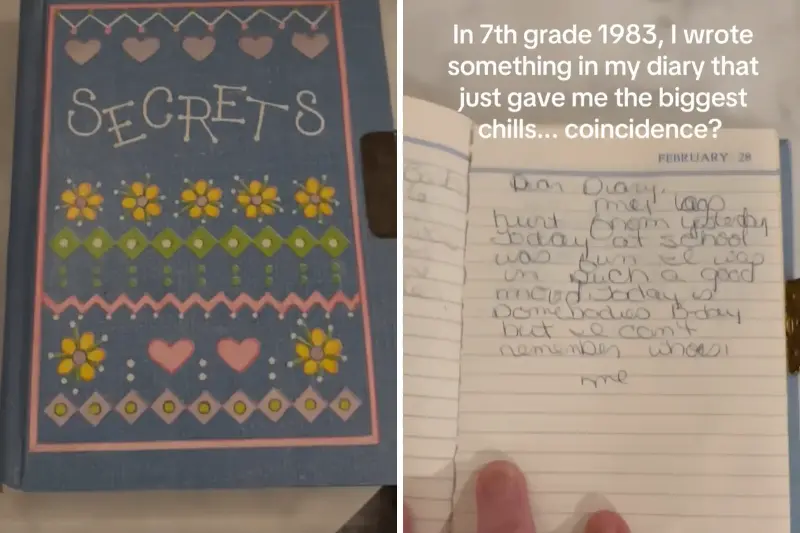 SECRETS
In 7th grade 1983, I wrote
something in my diary that
just gave me the biggest
chills... coincidence?
FEBRUARY 28
Dear Diary,
my legs
hurt from yesterday
Today at school
was fun I was
in such a good
mood Today is
Somebodies B-day
but I can't
remember whose!
me